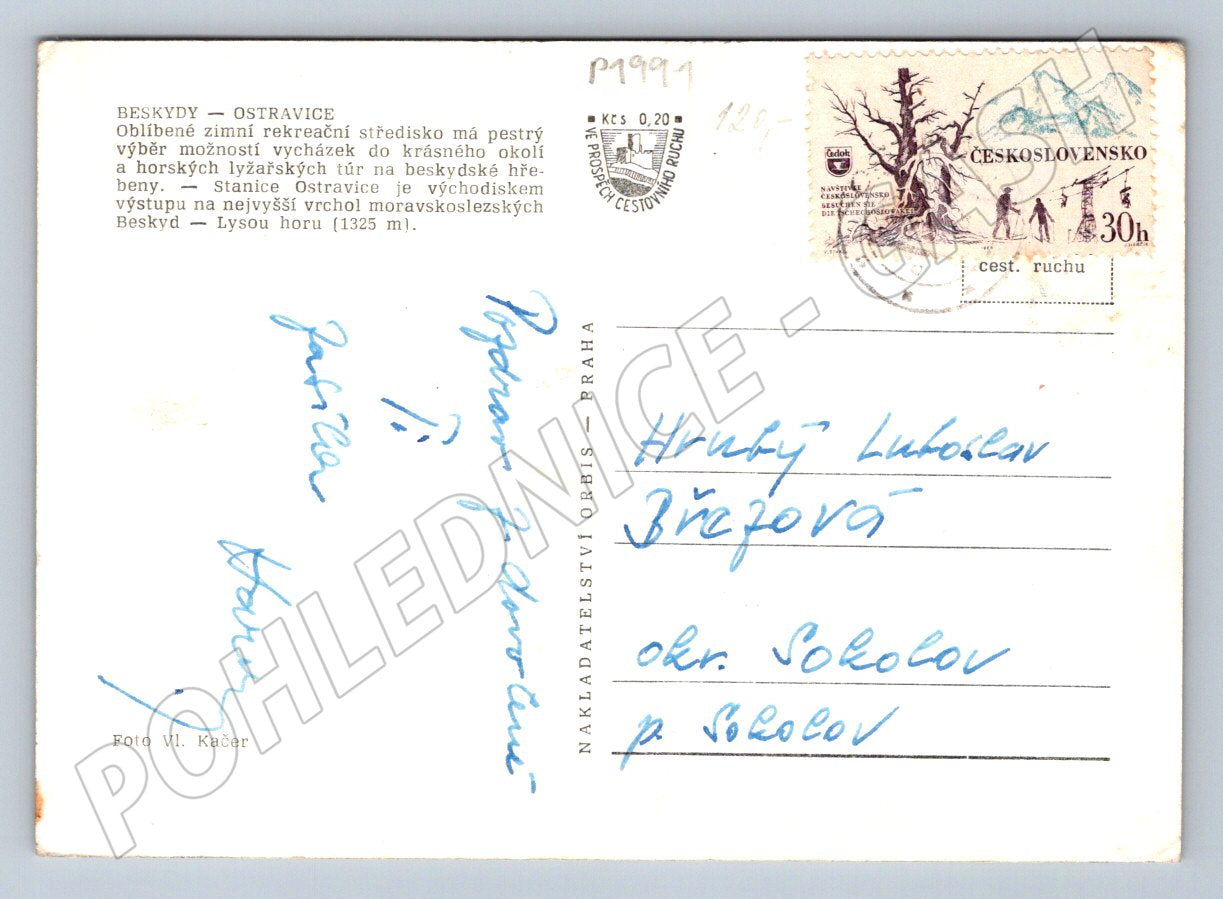 BESKYDY — OSTRAVICE
Oblíbené zimní rekreační středisko má pestrý
výběr možností vycházek do krásného okolí
a horských lyžařských túr na beskydské hře-
beny. — Stanice Ostravice je východiskem
výstupu na nejvyšší vrchol moravskoslezských
Beskyd — Lysou horu (1325 m).
P1991
Kčs 0,20
VE PROSPĚCH CESTOVNÍHO RUCHU
120,-
čedok
ČESKOSLOVENSKO
NAVŠTIVTE
ČESKOSLOVENSKO
BESUCHEN SIE
DIE TSCHECHOSLOWAKEI
30h
cest. ruchu
Pozdrav z dovolené
Ti
NAKLADATELSTVÍ ORBIS — PRAHA
Hrubý Luboslav
Březová
okr. Sokolov
p. Sokolov
Foto Vl. Kačer
POHLEDNICE - GASH